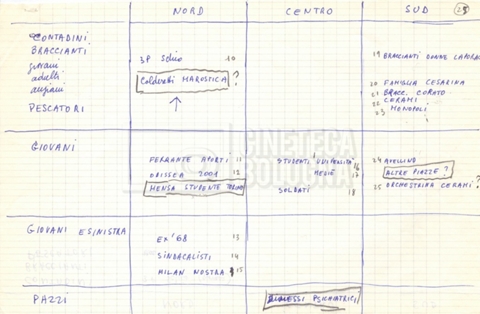 NORD CENTRO SUD 25
CONTADINI
BRACCIANTI
giovani
adulti
anziani
PESCATORI
3P Schio 10
Coldiretti MAROSTICA ?
19 BRACCIANTI DONNE
20 FAMIGLIA CESARINA
21 BRACC. CORATO
22 CERAMI
23 MONOPOLI
CINETECA
BOLOGNA
GIOVANI
FERRANTE APORTI 11
ODISSEA 2001 12
MENSA STUDENTI TORINO
STUDENTI UNIVERSITÀ 16
MEDIE 17
SOLDATI 18
24 AVELLINO
ALTRE PIAZZE ?
25 ORCHESTRINA CERAMI ?
GIOVANI E SINISTRA
EX '68 13
SINDACALISTI 14
MILAN NOSTRA 15
PAZZI
DIMESSI PSICHIATRICI